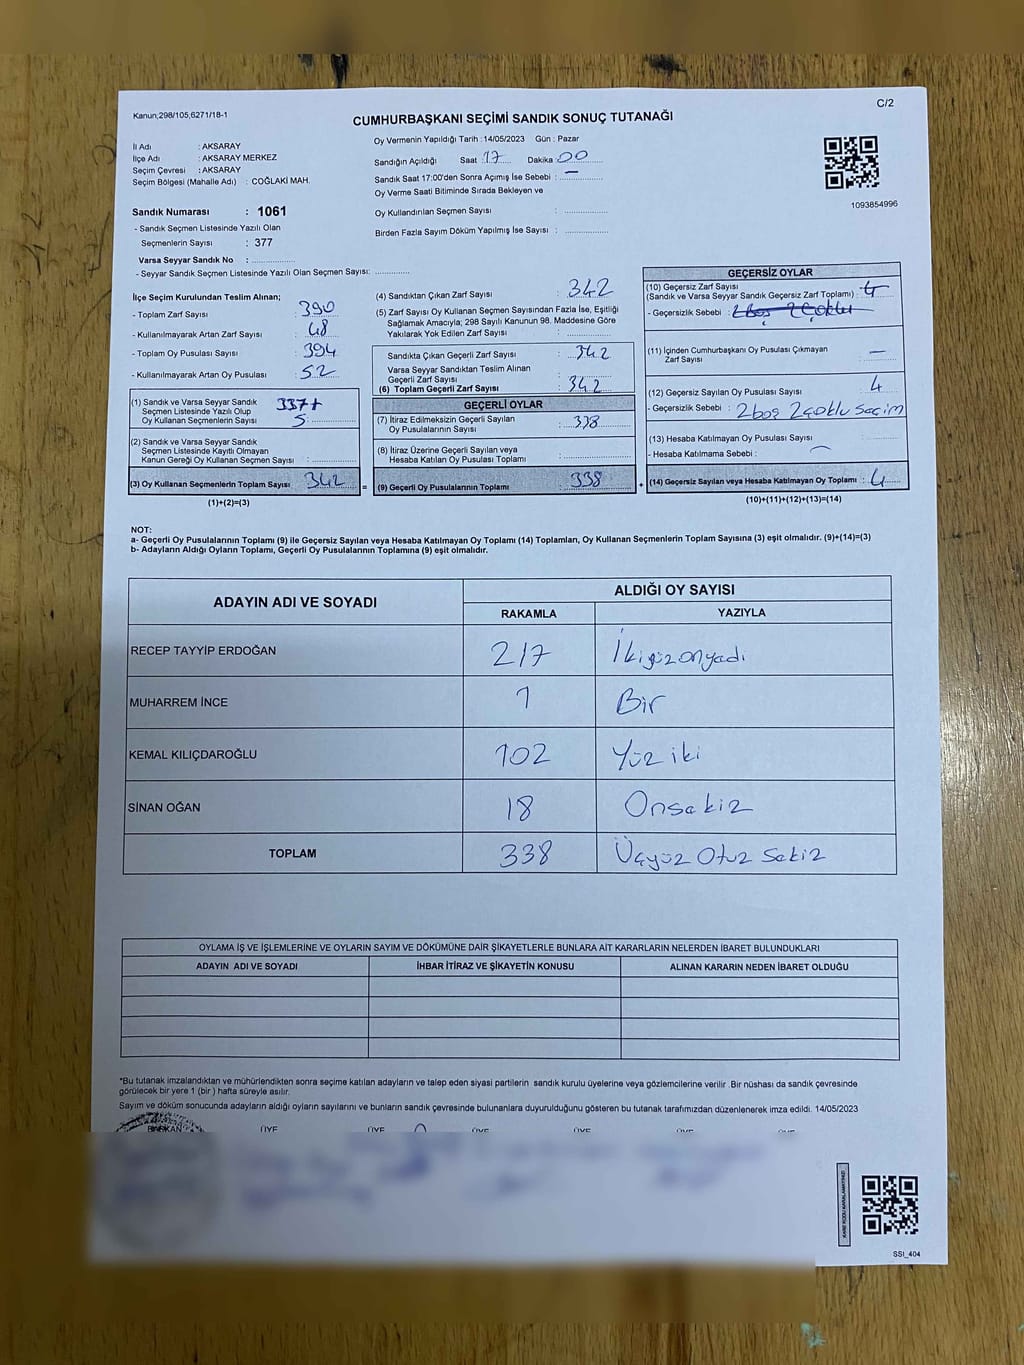 C/2
Kanun;298/105,6271/18-1
CUMHURBAŞKANI SEÇİMİ SANDIK SONUÇ TUTANAĞI
İl Adı : AKSARAY
İlçe Adı : AKSARAY MERKEZ
Seçim Çevresi : AKSARAY
Seçim Bölgesi (Mahalle Adı) : COĞLAKİ MAH.
Sandık Numarası : 1061
- Sandık Seçmen Listesinde Yazılı Olan
Seçmenlerin Sayısı : 377
Varsa Seyyar Sandık No : ..............
- Seyyar Sandık Seçmen Listesinde Yazılı Olan Seçmen Sayısı: ............
Oy Vermenin Yapıldığı Tarih : 14/05/2023 Gün : Pazar
Sandığın Açıldığı Saat 17 Dakika : 00
Sandık Saat 17:00'den Sonra Açımış İse Sebebi : —
Oy Verme Saati Bitiminde Sırada Bekleyen ve
Oy Kullandırılan Seçmen Sayısı : ..............
Birden Fazla Sayım Döküm Yapılmış İse Sayısı : ..............
1093854996
İlçe Seçim Kurulundan Teslim Alınan;
- Toplam Zarf Sayısı : 390
- Kullanılmayarak Artan Zarf Sayısı : 48
- Toplam Oy Pusulası Sayısı : 394
- Kullanılmayarak Artan Oy Pusulası : 52
(1) Sandık ve Varsa Seyyar Sandık 337+
Seçmen Listesinde Yazılı Olup
Oy Kullanan Seçmenlerin Sayısı : 5
(2) Sandık ve Varsa Seyyar Sandık
Seçmen Listesinde Kayıtlı Olmayan
Kanun Gereği Oy Kullanan Seçmen Sayısı : ..............
(3) Oy Kullanan Seçmenlerin Toplam Sayısı : 342
(1)+(2)=(3)
(4) Sandıktan Çıkan Zarf Sayısı : 342
(5) Zarf Sayısı Oy Kullanan Seçmen Sayısından Fazla İse, Eşitliği
Sağlamak Amacıyla; 298 Sayılı Kanunun 98. Maddesine Göre
Yakılarak Yok Edilen Zarf Sayısı : ..............
Sandıkta Çıkan Geçerli Zarf Sayısı : 342
Varsa Seyyar Sandıktan Teslim Alınan
Geçerli Zarf Sayısı
(6) Toplam Geçerli Zarf Sayısı : 342
GEÇERLİ OYLAR
(7) İtiraz Edilmeksizin Geçerli Sayılan
Oy Pusulalarının Sayısı : 338
(8) İtiraz Üzerine Geçerli Sayılan veya
Hesaba Katılan Oy Pusulası Toplamı : ..............
= (9) Geçerli Oy Pusulalarının Toplamı : 338 +
GEÇERSİZ OYLAR
(10) Geçersiz Zarf Sayısı
(Sandık ve Varsa Seyyar Sandık Geçersiz Zarf Toplamı) : 4
- Geçersizlik Sebebi : 2 boş 2 çoklu
(11) İçinden Cumhurbaşkanı Oy Pusulası Çıkmayan
Zarf Sayısı : —
(12) Geçersiz Sayılan Oy Pusulası Sayısı : 4
- Geçersizlik Sebebi : 2 boş 2 çoklu Seçim
(13) Hesaba Katılmayan Oy Pusulası Sayısı : ..............
- Hesaba Katılmama Sebebi :
(14) Geçersiz Sayılan veya Hesaba Katılmayan Oy Toplamı : 4
(10)+(11)+(12)+(13)=(14)
NOT:
a- Geçerli Oy Pusulalarının Toplamı (9) ile Geçersiz Sayılan veya Hesaba Katılmayan Oy Toplamı (14) Toplamları, Oy Kullanan Seçmenlerin Toplam Sayısına (3) eşit olmalıdır. (9)+(14)=(3)
b- Adayların Aldığı Oyların Toplamı, Geçerli Oy Pusulalarının Toplamına (9) eşit olmalıdır.
ADAYIN ADI VE SOYADI ALDIĞI OY SAYISI
RAKAMLA YAZIYLA
RECEP TAYYİP ERDOĞAN 217 İkiyüzonyedi
MUHARREM İNCE 1 Bir
KEMAL KILIÇDAROĞLU 102 Yüz iki
SİNAN OĞAN 18 Onsekiz
TOPLAM 338 Üçyüz Otuz Sekiz
OYLAMA İŞ VE İŞLEMLERİNE VE OYLARIN SAYIM VE DÖKÜMÜNE DAİR ŞİKAYETLERLE BUNLARA AİT KARARLARIN NELERDEN İBARET BULUNDUKLARI
ADAYIN ADI VE SOYADI İHBAR İTİRAZ VE ŞİKAYETİN KONUSU ALINAN KARARIN NEDEN İBARET OLDUĞU
*Bu tutanak imzalandıktan ve mühürlendikten sonra seçime katılan adayların ve talep eden siyasi partilerin sandık kurulu üyelerine veya gözlemcilerine verilir .Bir nüshası da sandık çevresinde
görülecek bir yere 1 (bir ) hafta süreyle asılır.
Sayım ve döküm sonucunda adayların aldığı oyların sayılarını ve bunların sandık çevresinde bulunanlara duyurulduğunu gösteren bu tutanak tarafımızdan düzenlenerek imza edildi. 14/05/2023
BAŞKAN ÜYE ÜYE ÜYE ÜYE ÜYE ÜYE
SSI_404